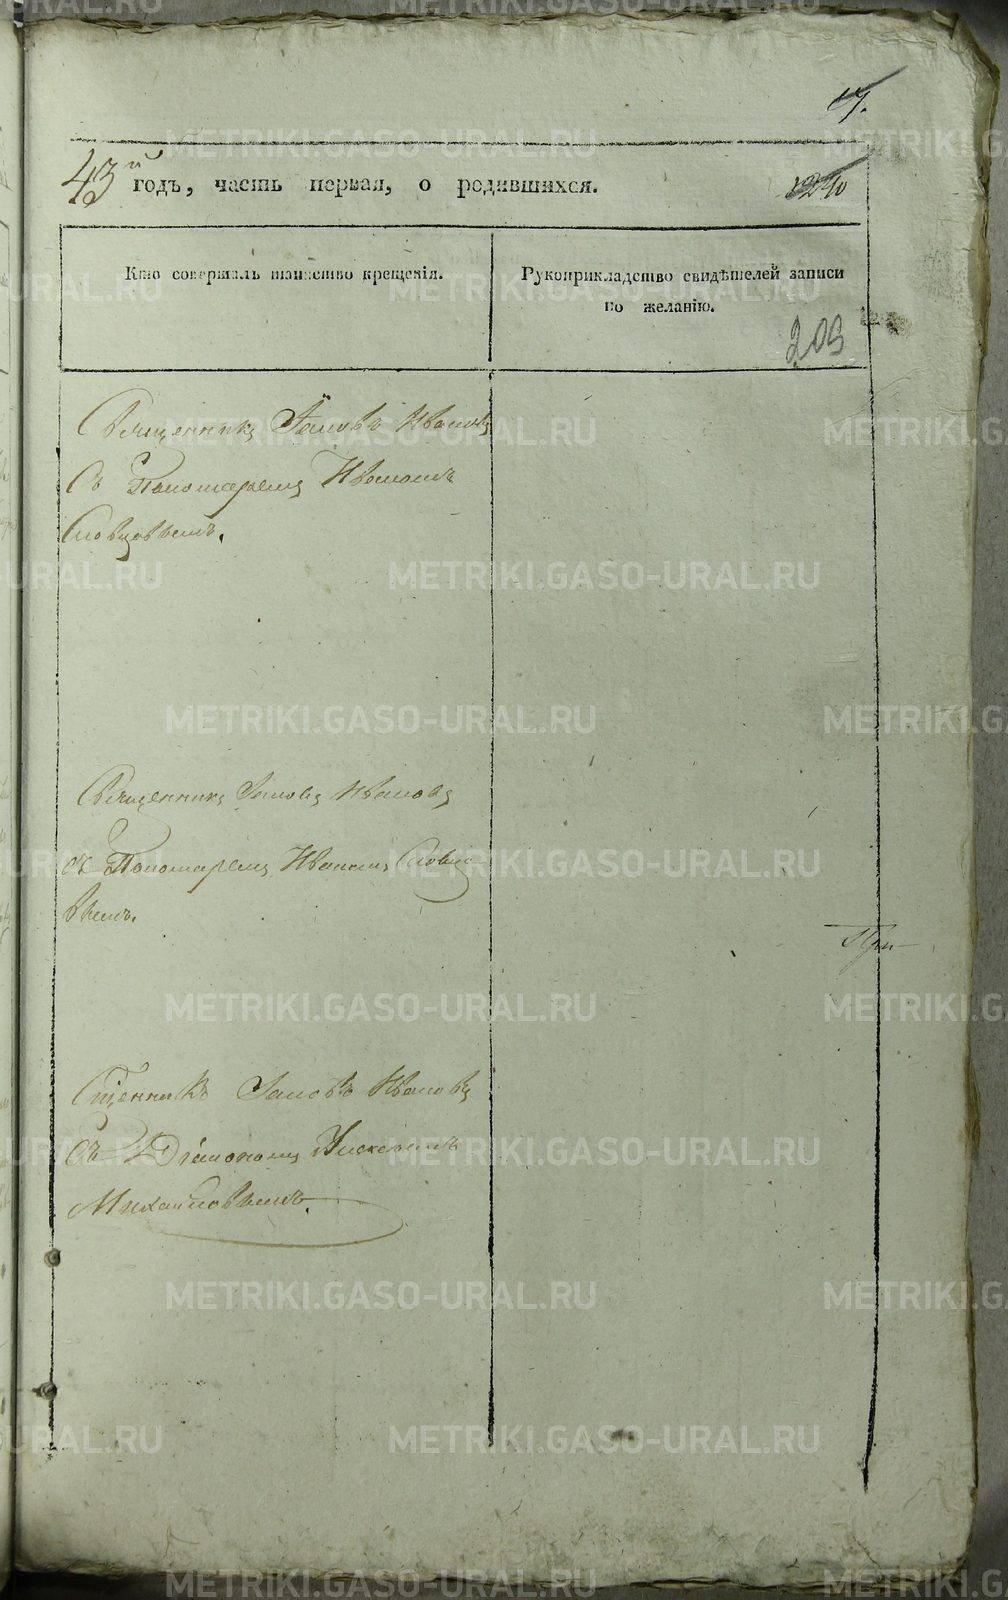 17.
43й годъ, часть первая, о родившихся.
1240
Кто совершалъ таинство крещенія.
Рукоприкладство свидѣтелей записи
по желанію.
209
Священникъ Іаковъ Ивановъ
съ Пономаремъ Иваномъ
Словцовымъ.
Священникъ Іаковъ Ивановъ
съ Пономаремъ Иваномъ Словцо-
вымъ.
При-
Сщенникъ Іаковъ Ивановъ
съ Діакономъ
Михайловымъ.
METRIKI.GASO-URAL.RU